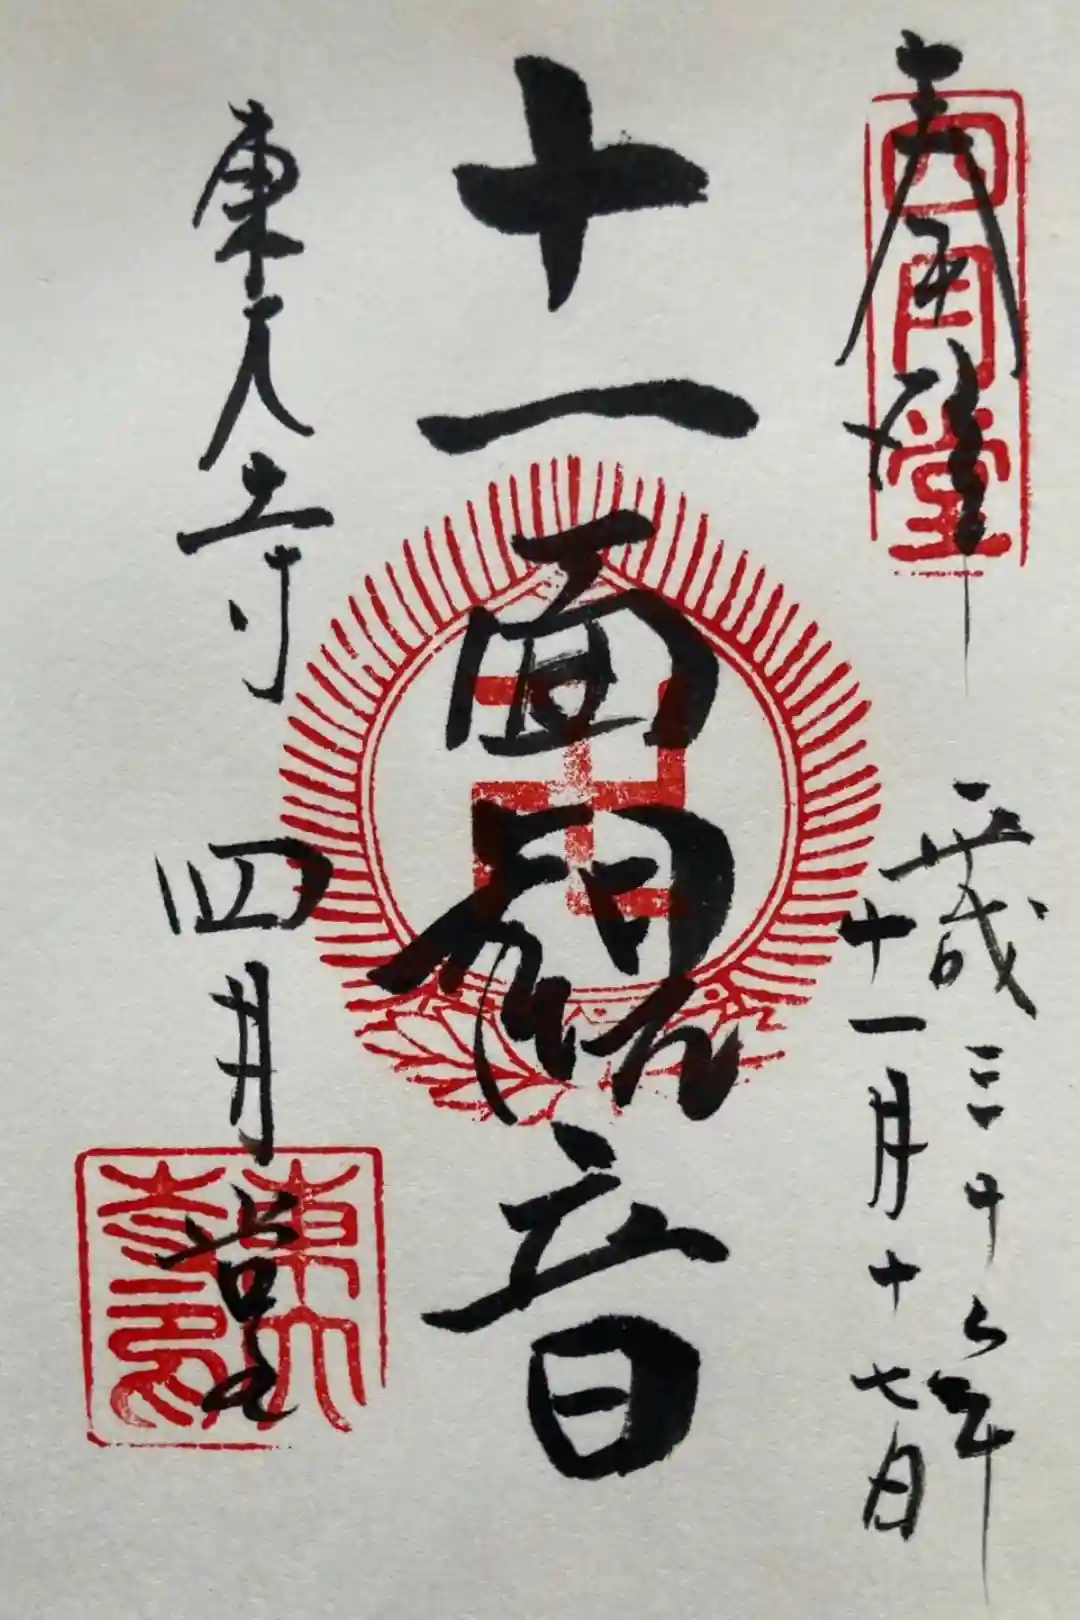 奉拝
四月堂
平成三十年
十一月十七日
十一面観音
東大寺
四月堂
東大
寺印